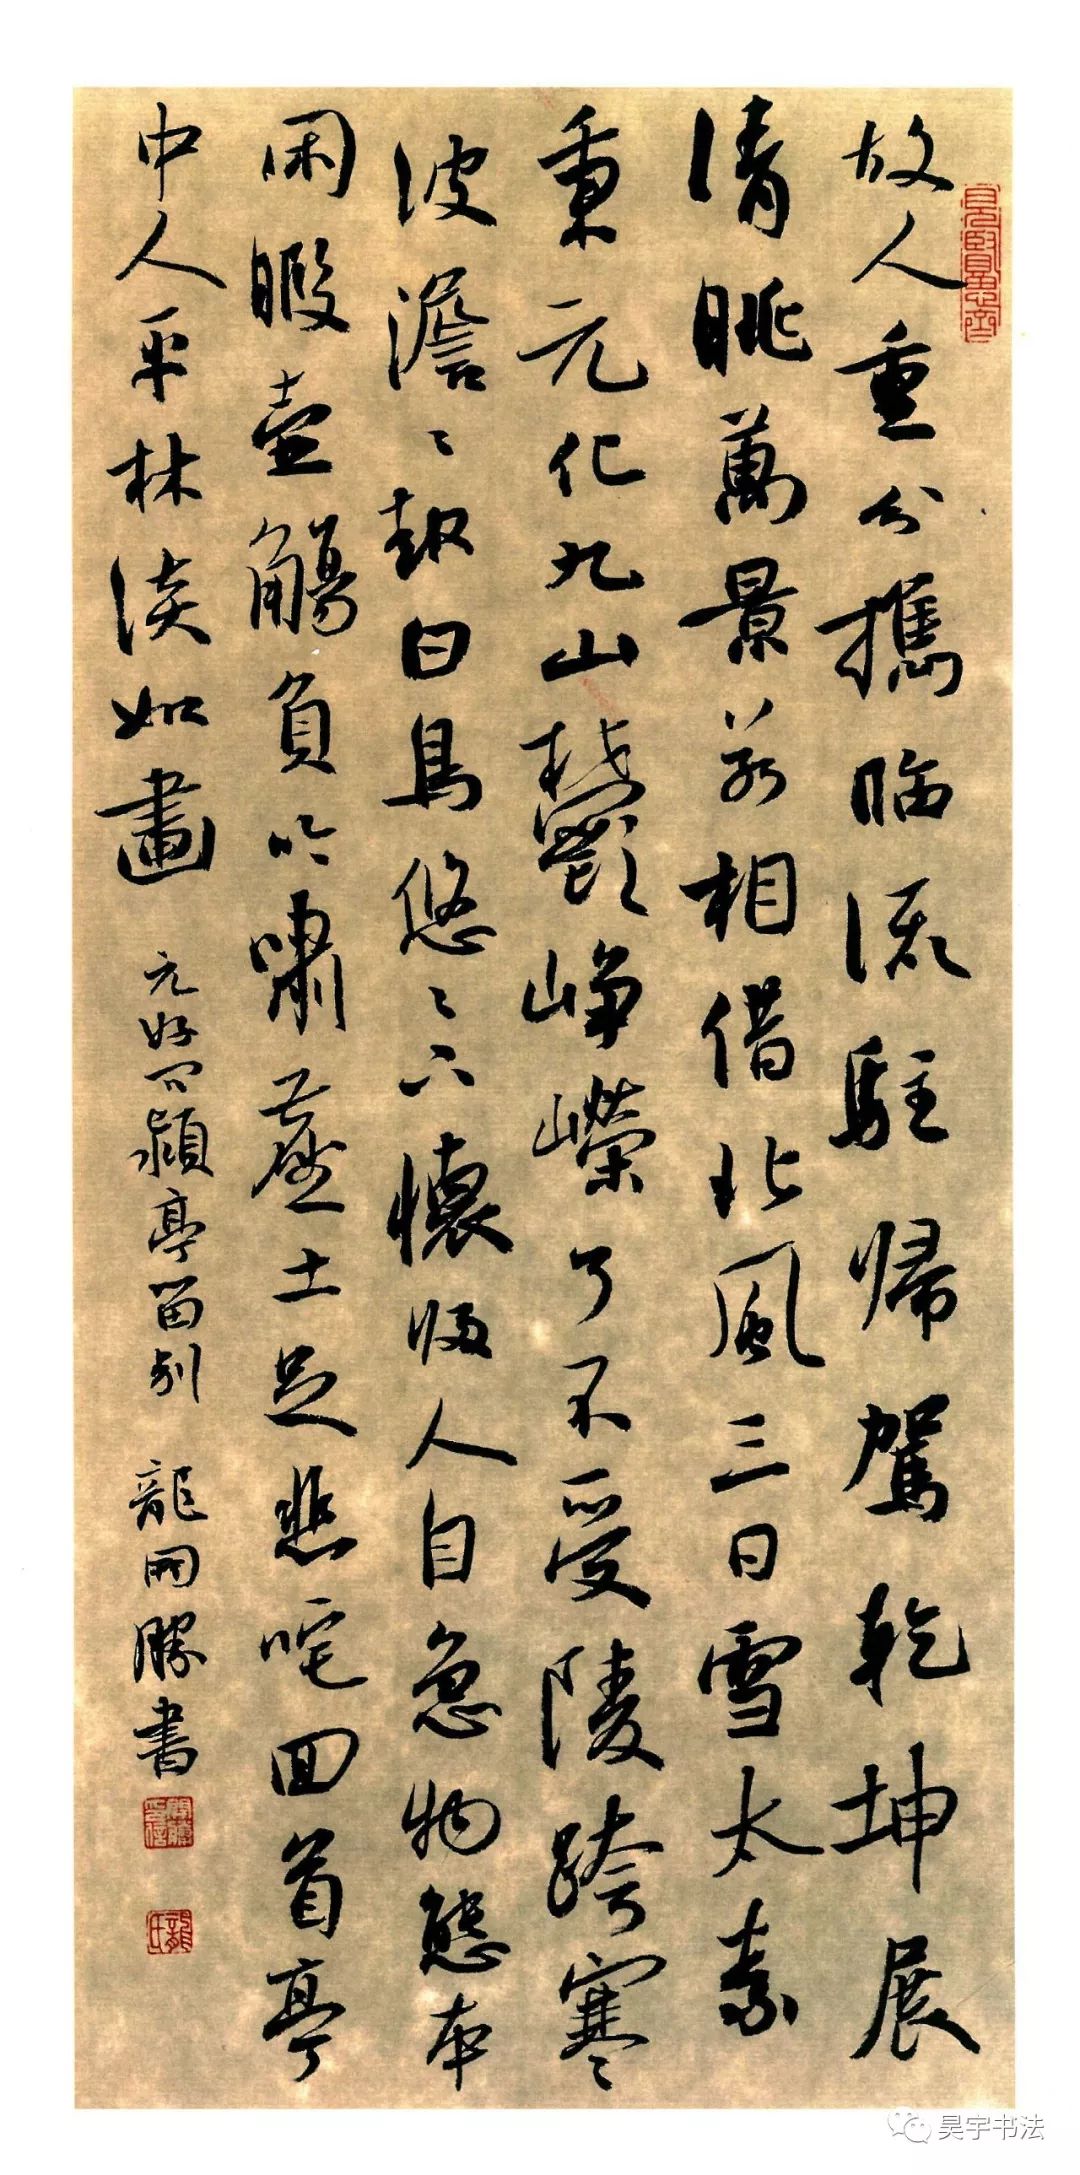 故人重分攜臨流駐歸駕乾坤展
清眺萬景若相借北風三日雪太素
秉元化九山鬱崢嶸了不受陵跨寒
波澹〻起白鳥悠〻下懷歸人自急物態本
閑暇壺觴負吟嘯塵土足悲咤回首亭
中人平林淡如畫
元好问颍亭留别 龍開勝書
見賢思齊
龍氏
昊宇书法